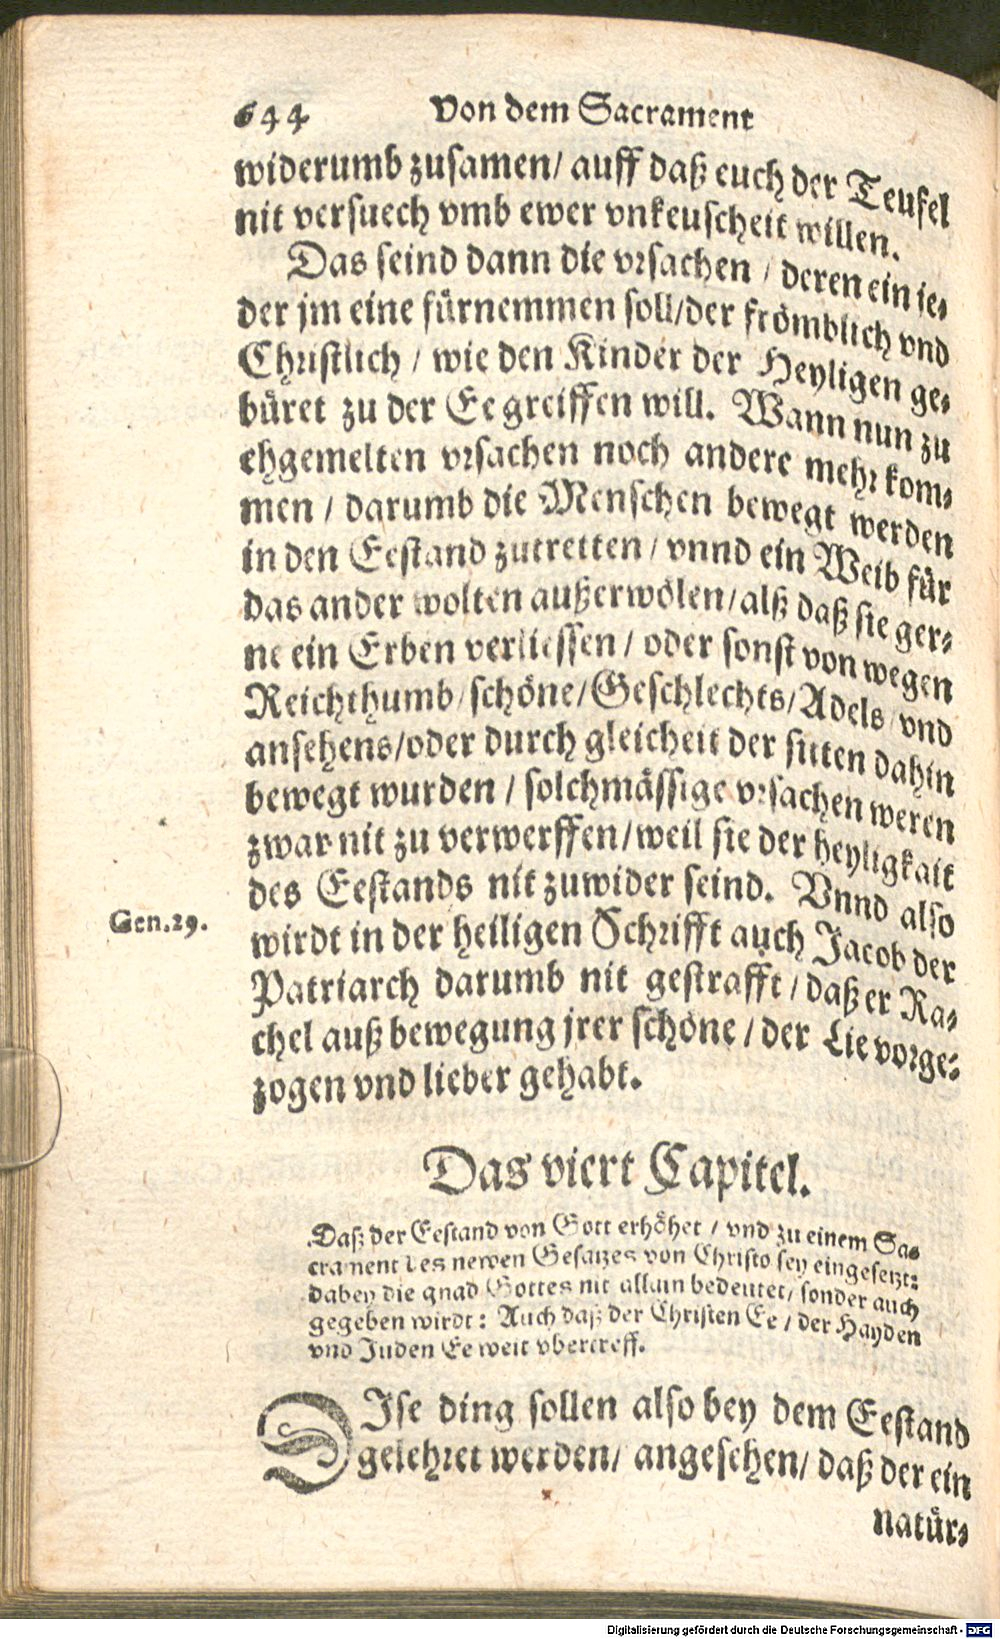 644 Von dem Sacrament
widerumb zusamen/ auff daß euch der Teufel
nit versuech vmb ewer vnkeuscheit willen.
Das seind dann die vrsachen / deren ein ie-
der jm eine fürnemmen soll/der frömblich vnd
Christlich / wie den Kinder der Heyligen ge-
büret zu der Ee greiffen will. Wann nun zu
ehgemelten vrsachen noch andere mehr kom-
men / darumb die Menschen bewegt werden
in den Eestand zutretten / vnnd ein Weib für
das ander wolten außerwölen/alß daß sie ger-
ne ein Erben verliessen / oder sonst von wegen
Reichthumb/schöne/Geschlechts/Adels/vnd
ansehens/oder durch gleicheit der sitten dahin
bewegt wurden / solchmässige vrsachen weren
zwar nit zu verwerffen/weil sie der heyligkait
des Eestands nit zuwider seind. Vnnd also
Gen.29.
wirdt in der heiligen Schrifft auch Jacob der
Patriarch darumb nit gestrafft / daß er Ra-
chel auß bewegung jrer schöne / der Lie vorge-
zogen vnd lieber gehabt.
Das viert Capitel.
Daß der Eestand von Gott erhöhet / vnd zu einem Sa-
crament des newen Gesatzes von Christo sey eingesetzt:
dabey die gnad Gottes nit allain bedeutet/ sonder auch
gegeben wirdt: Auch daß der Christen Ee / der Hayden
vnd Juden Ee weit vbertreff.
DIse ding sollen also bey dem Eestand
gelehret werden/ angesehen/ daß der ein
natür-
Digitalisierung gefördert durch die Deutsche Forschungsgemeinschaft - DFG